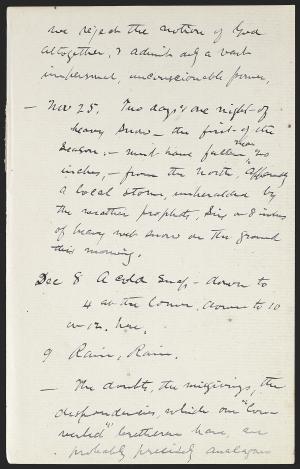 we reject the notion of God
altogether, & admit only a vast
impersonal, unconscionable power.
— Nov 25. Two days & one night of
heavy snow — the first of the
season, — must have fallen near 20
inches, — from the North, apparently
a local storm, unheralded by
the weather prophets. Six or 8 inches
of heavy wet snow on the ground
this morning.
Dec 8 A cold snap - down to
4 at the lower, down to 10
or 12 here.
9 Rain, Rain.
— The doubts, the misgivings, the
despondencies, which our
brethren have, are
probably precisely analogous